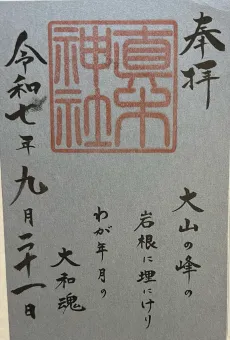 奉拝
真木
神社
大山の峰の
岩根に埋にけり
わが年月の
大和魂
令和七年九月二十一日